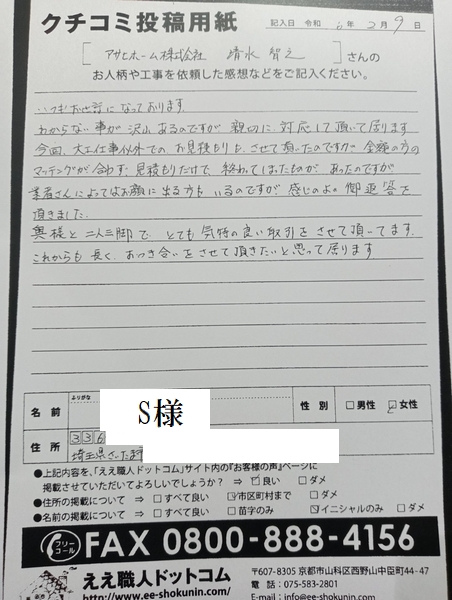 クチコミ投稿用紙
記入日 令和 6年 2月 9日
[ アサヒホーム株式会社 清水 智之 ] さんの
お人柄や工事を依頼した感想などをご記入ください。
いつもお世話になっております。
わからない事が沢山あるのですが 親切に対応して頂いて居ります
今回、大工仕事以外での お見積もりも、させて頂いたのですが 金額の方の
マッチングが合わず、見積もりだけで、終わってしまったものが あったのですが
業者さんによってはお顔に出る方も いるのですが 感じのよい御返答を
頂きました。
奥様と二人三脚で、とても気持の良い取引をさせて頂いてます。
これからも長く、おつき合いをさせて頂きたいと思って居ります
ふりがな
名前 S様 性別 □男性 ☑女性
住所 336
埼玉県さいたま市
●上記内容を、「ええ職人ドットコム」サイト内の『お客様の声』ページに
掲載させていただいてよろしいでしょうか? ⇒ ☑良い □ダメ
●住所の掲載について ⇒ □すべて良い ☑市区町村まで □ダメ
●名前の掲載について ⇒ □すべて良い □苗字のみ ☑イニシャルのみ □ダメ
フリーコール FAX 0800-888-4156
ええ職人ドットコム
http://www.ee-shokunin.com/
〒607-8305 京都市山科区西野山中臣町44-47
電話:075-583-2801
E-mail:info@ee-shokunin.com